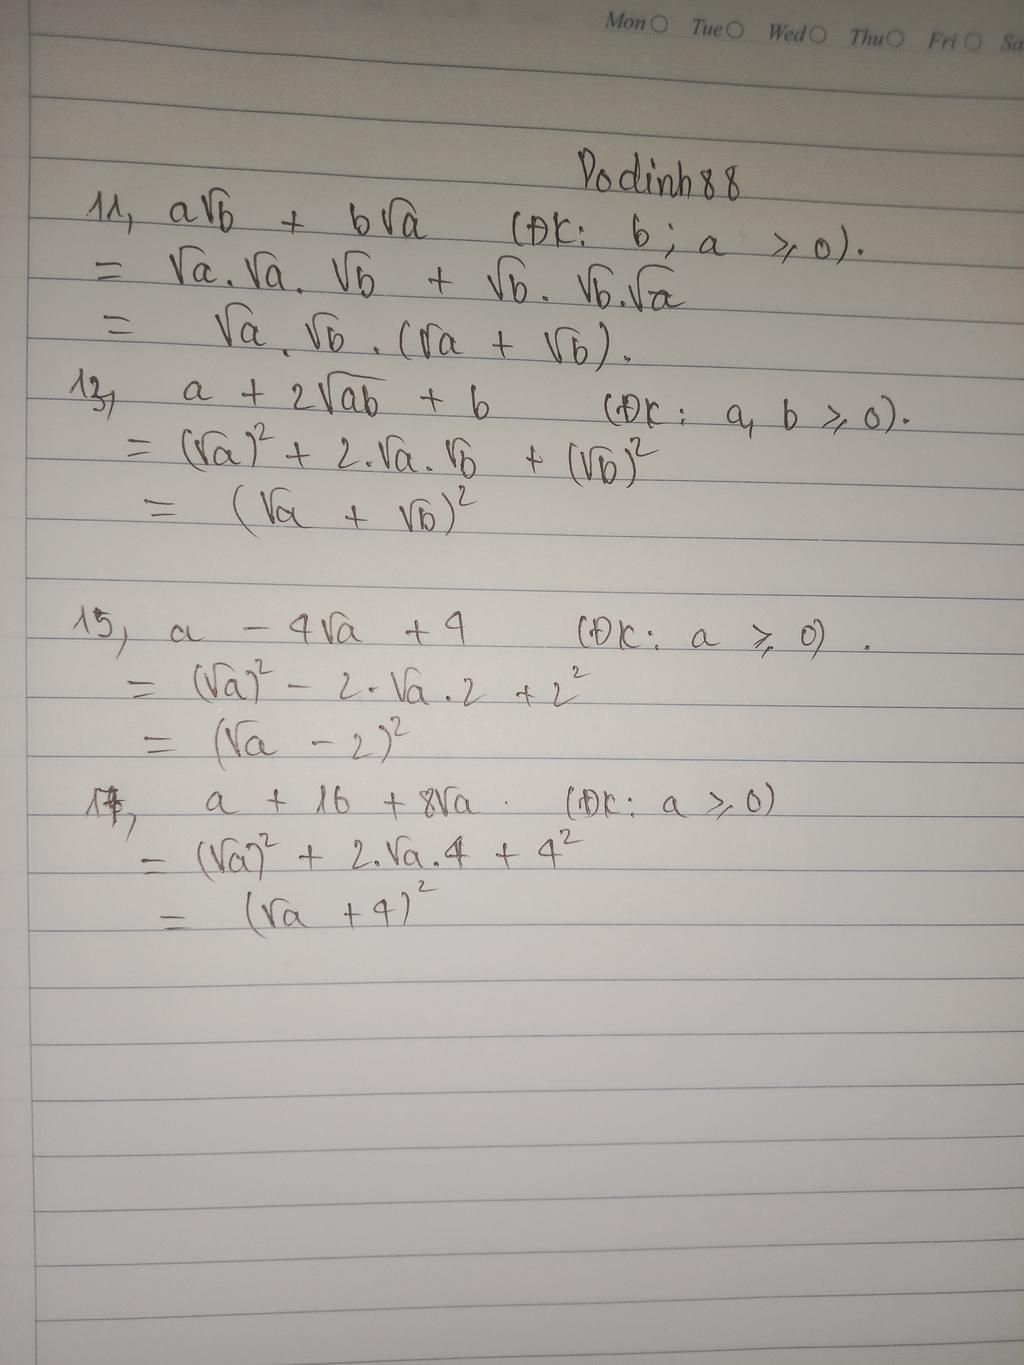 Mon Tue Wed Thu Fri Sa
Dodinh88
11, a√b + b√a (ĐK: b; a ≥ 0).
= √a.√a.√b + √b.√b.√a
= √a.√b.(√a + √b).
13, a + 2√ab + b (ĐK: a, b ≥ 0).
= (√a)² + 2.√a.√b + (√b)²
= (√a + √b)²
15, a - 4√a + 4 (ĐK: a ≥ 0).
= (√a)² - 2.√a.2 + 2²
= (√a - 2)²
17, a + 16 + 8√a. (ĐK: a ≥ 0)
= (√a)² + 2.√a.4 + 4²
= (√a + 4)²